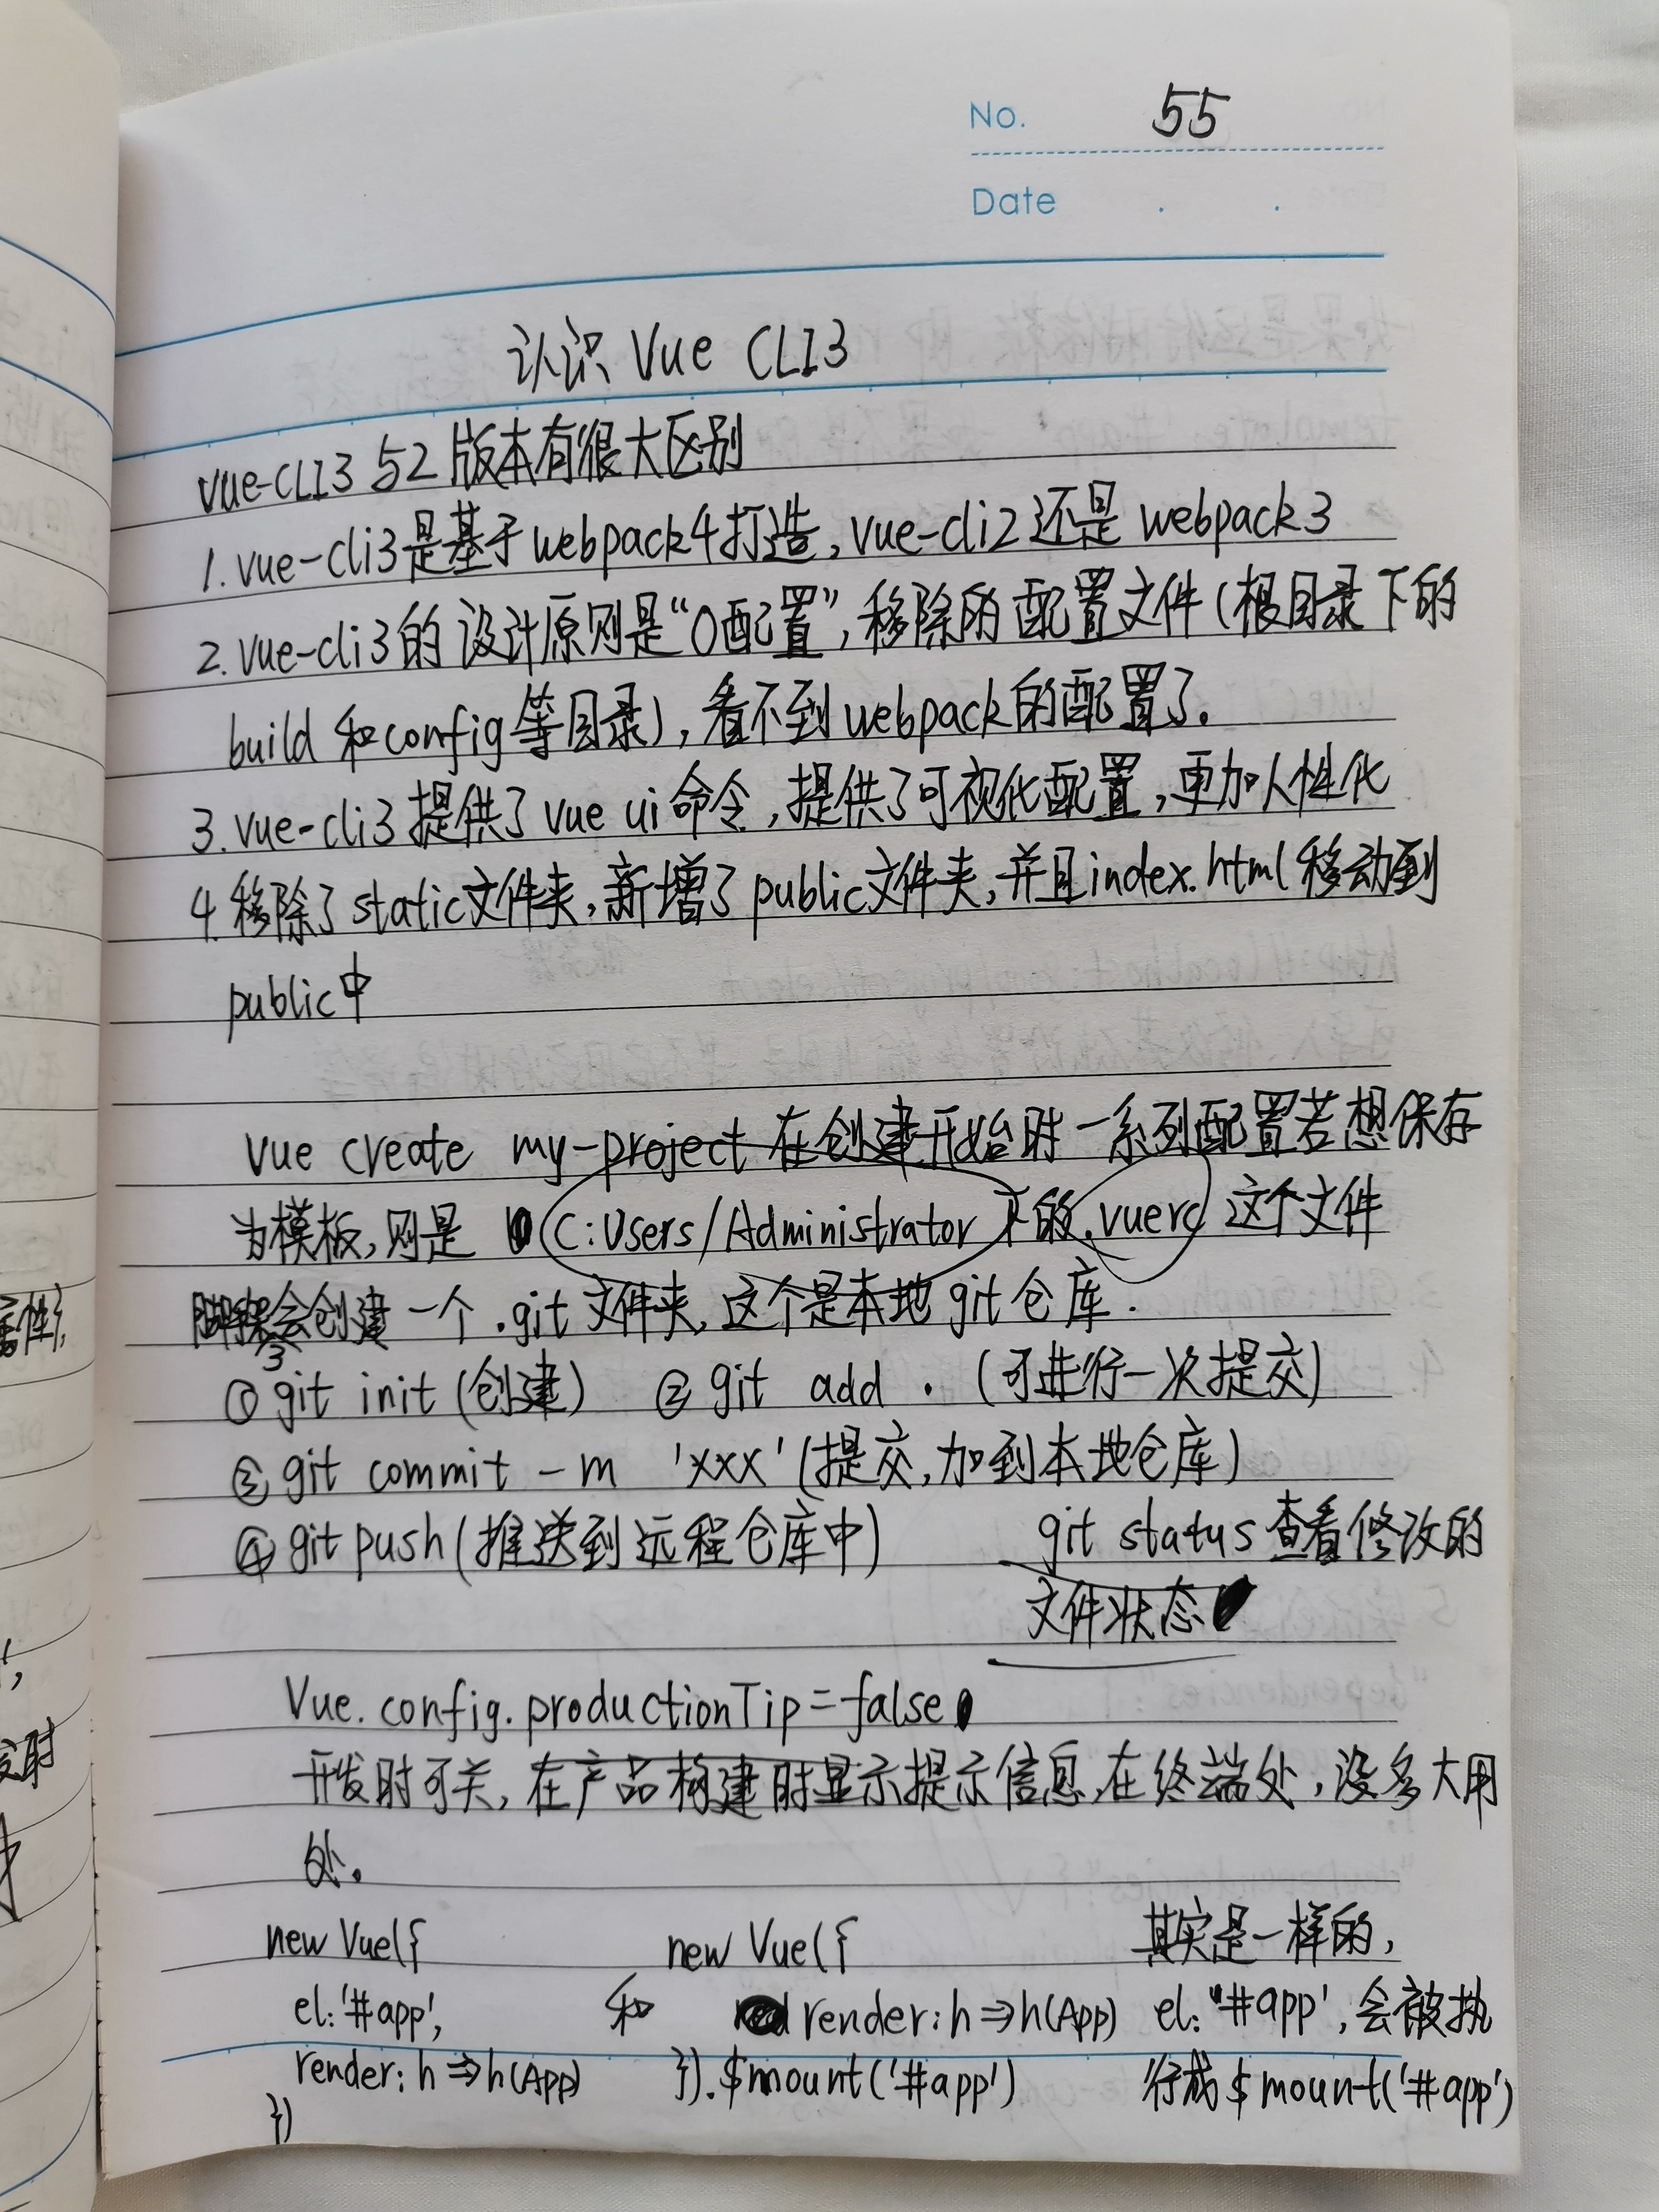 No. 55
Date . .
认识 Vue CLI3
vue-CLI3与2版本有很大区别
1. vue-cli3是基于webpack4打造,vue-cli2还是webpack3
2. vue-cli3的设计原则是“0配置”,移除的配置文件(根目录下的
build和config等目录),看不到webpack的配置了。
3. vue-cli3提供了vue ui命令,提供了可视化配置,更加人性化
4. 移除了static文件夹,新增了public文件夹,并且index.html移动到
public中
vue create my-project 在创建开始时一系列配置若想保存
为模板,则是 C:Users/Administrator下的.vuerc 这个文件
脚手架会创建一个 .git文件夹,这个是本地git仓库.
①git init (创建) ②git add . (可进行一次提交)
③git commit -m 'xxx'(提交,加到本地仓库)
④git push(推送到远程仓库中) git status查看修改的
文件状态
Vue.config.productionTip=false
开发时可关,在产品构建时显示提示信息,在终端处,没多大用
处。
new Vue({ new Vue({ 其实是一样的,
el:'#app', 和 render:h=>h(App) el:'#app',会被执
render:h=>h(App) }).$mount('#app') 行成$mount('#app')
})